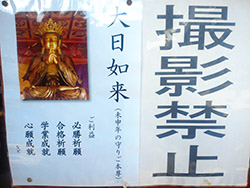 撮影禁止
大日如来
(未申年の守りご本尊)
ご利益
必勝祈願
合格祈願
学業成就
心願成就